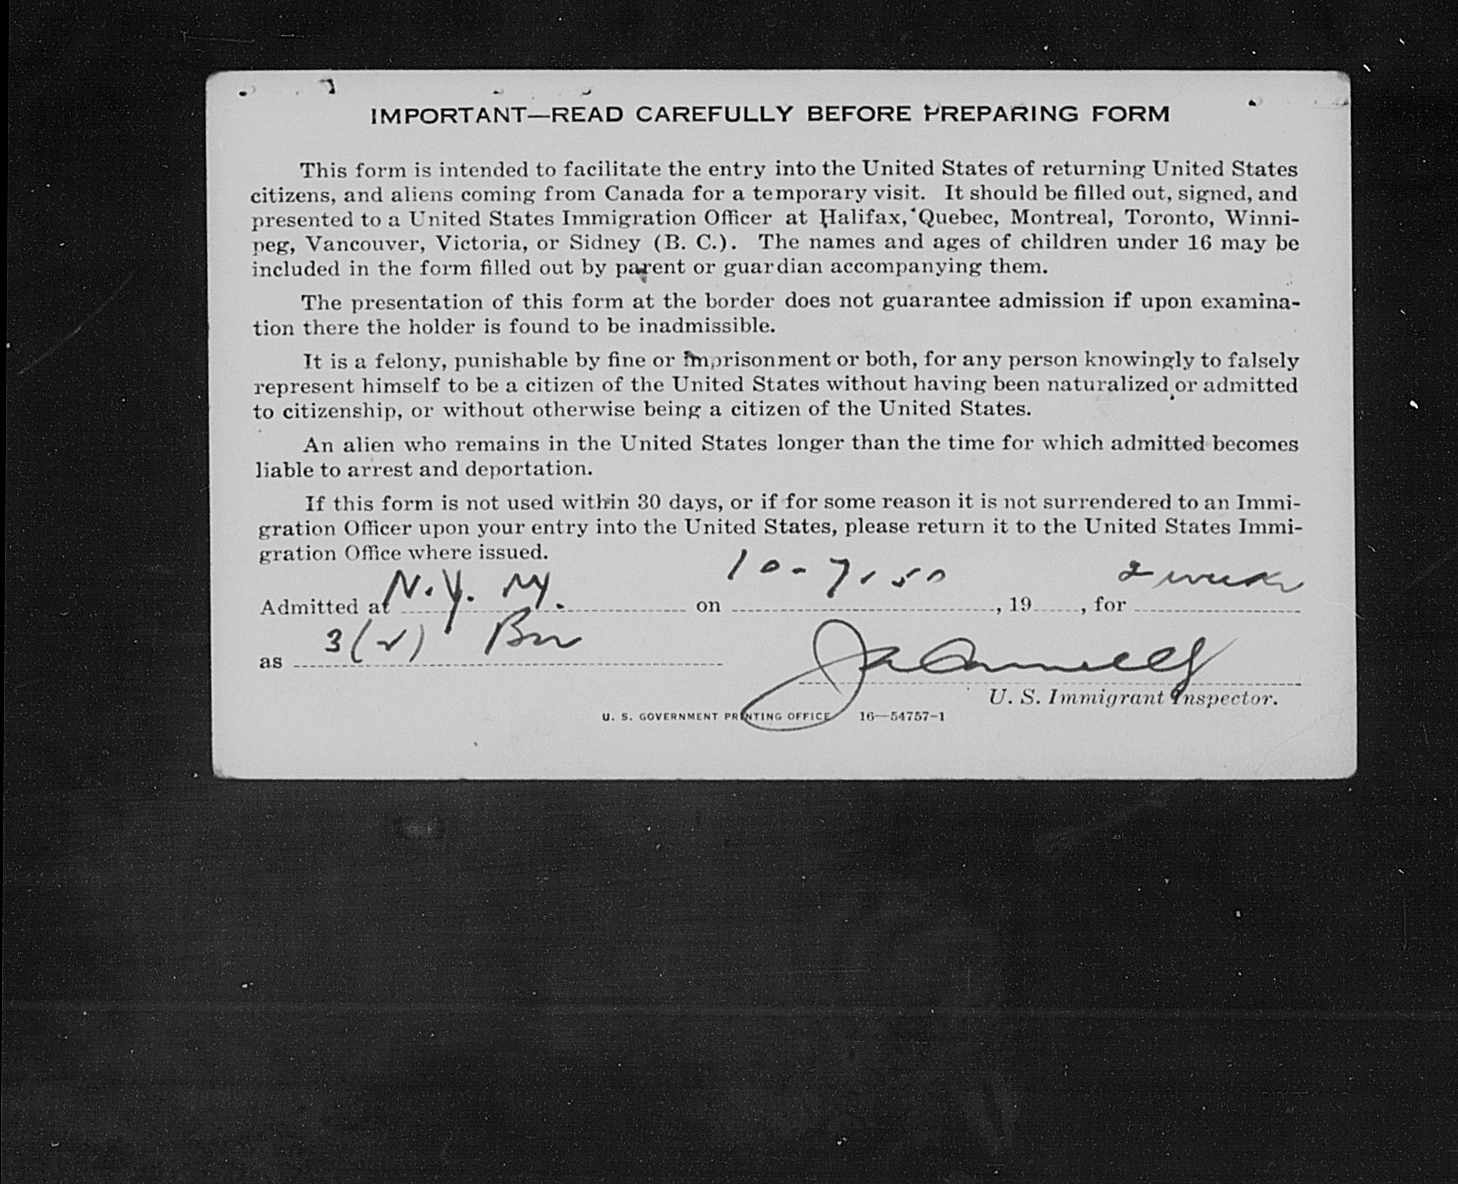 IMPORTANT—READ CAREFULLY BEFORE PREPARING FORM
This form is intended to facilitate the entry into the United States of returning United States
citizens, and aliens coming from Canada for a temporary visit. It should be filled out, signed, and
presented to a United States Immigration Officer at Halifax, Quebec, Montreal, Toronto, Winni-
peg, Vancouver, Victoria, or Sidney (B. C.). The names and ages of children under 16 may be
included in the form filled out by parent or guardian accompanying them.
The presentation of this form at the border does not guarantee admission if upon examina-
tion there the holder is found to be inadmissible.
It is a felony, punishable by fine or imprisonment or both, for any person knowingly to falsely
represent himself to be a citizen of the United States without having been naturalized or admitted
to citizenship, or without otherwise being a citizen of the United States.
An alien who remains in the United States longer than the time for which admitted becomes
liable to arrest and deportation.
If this form is not used within 30 days, or if for some reason it is not surrendered to an Immi-
gration Officer upon your entry into the United States, please return it to the United States Immi-
gration Office where issued.
Admitted at N.Y. NY. on 10-7-50, 19, for 2 weeks
as 3(2)
U. S. Immigrant Inspector.
U. S. GOVERNMENT PRINTING OFFICE 16—54757-1